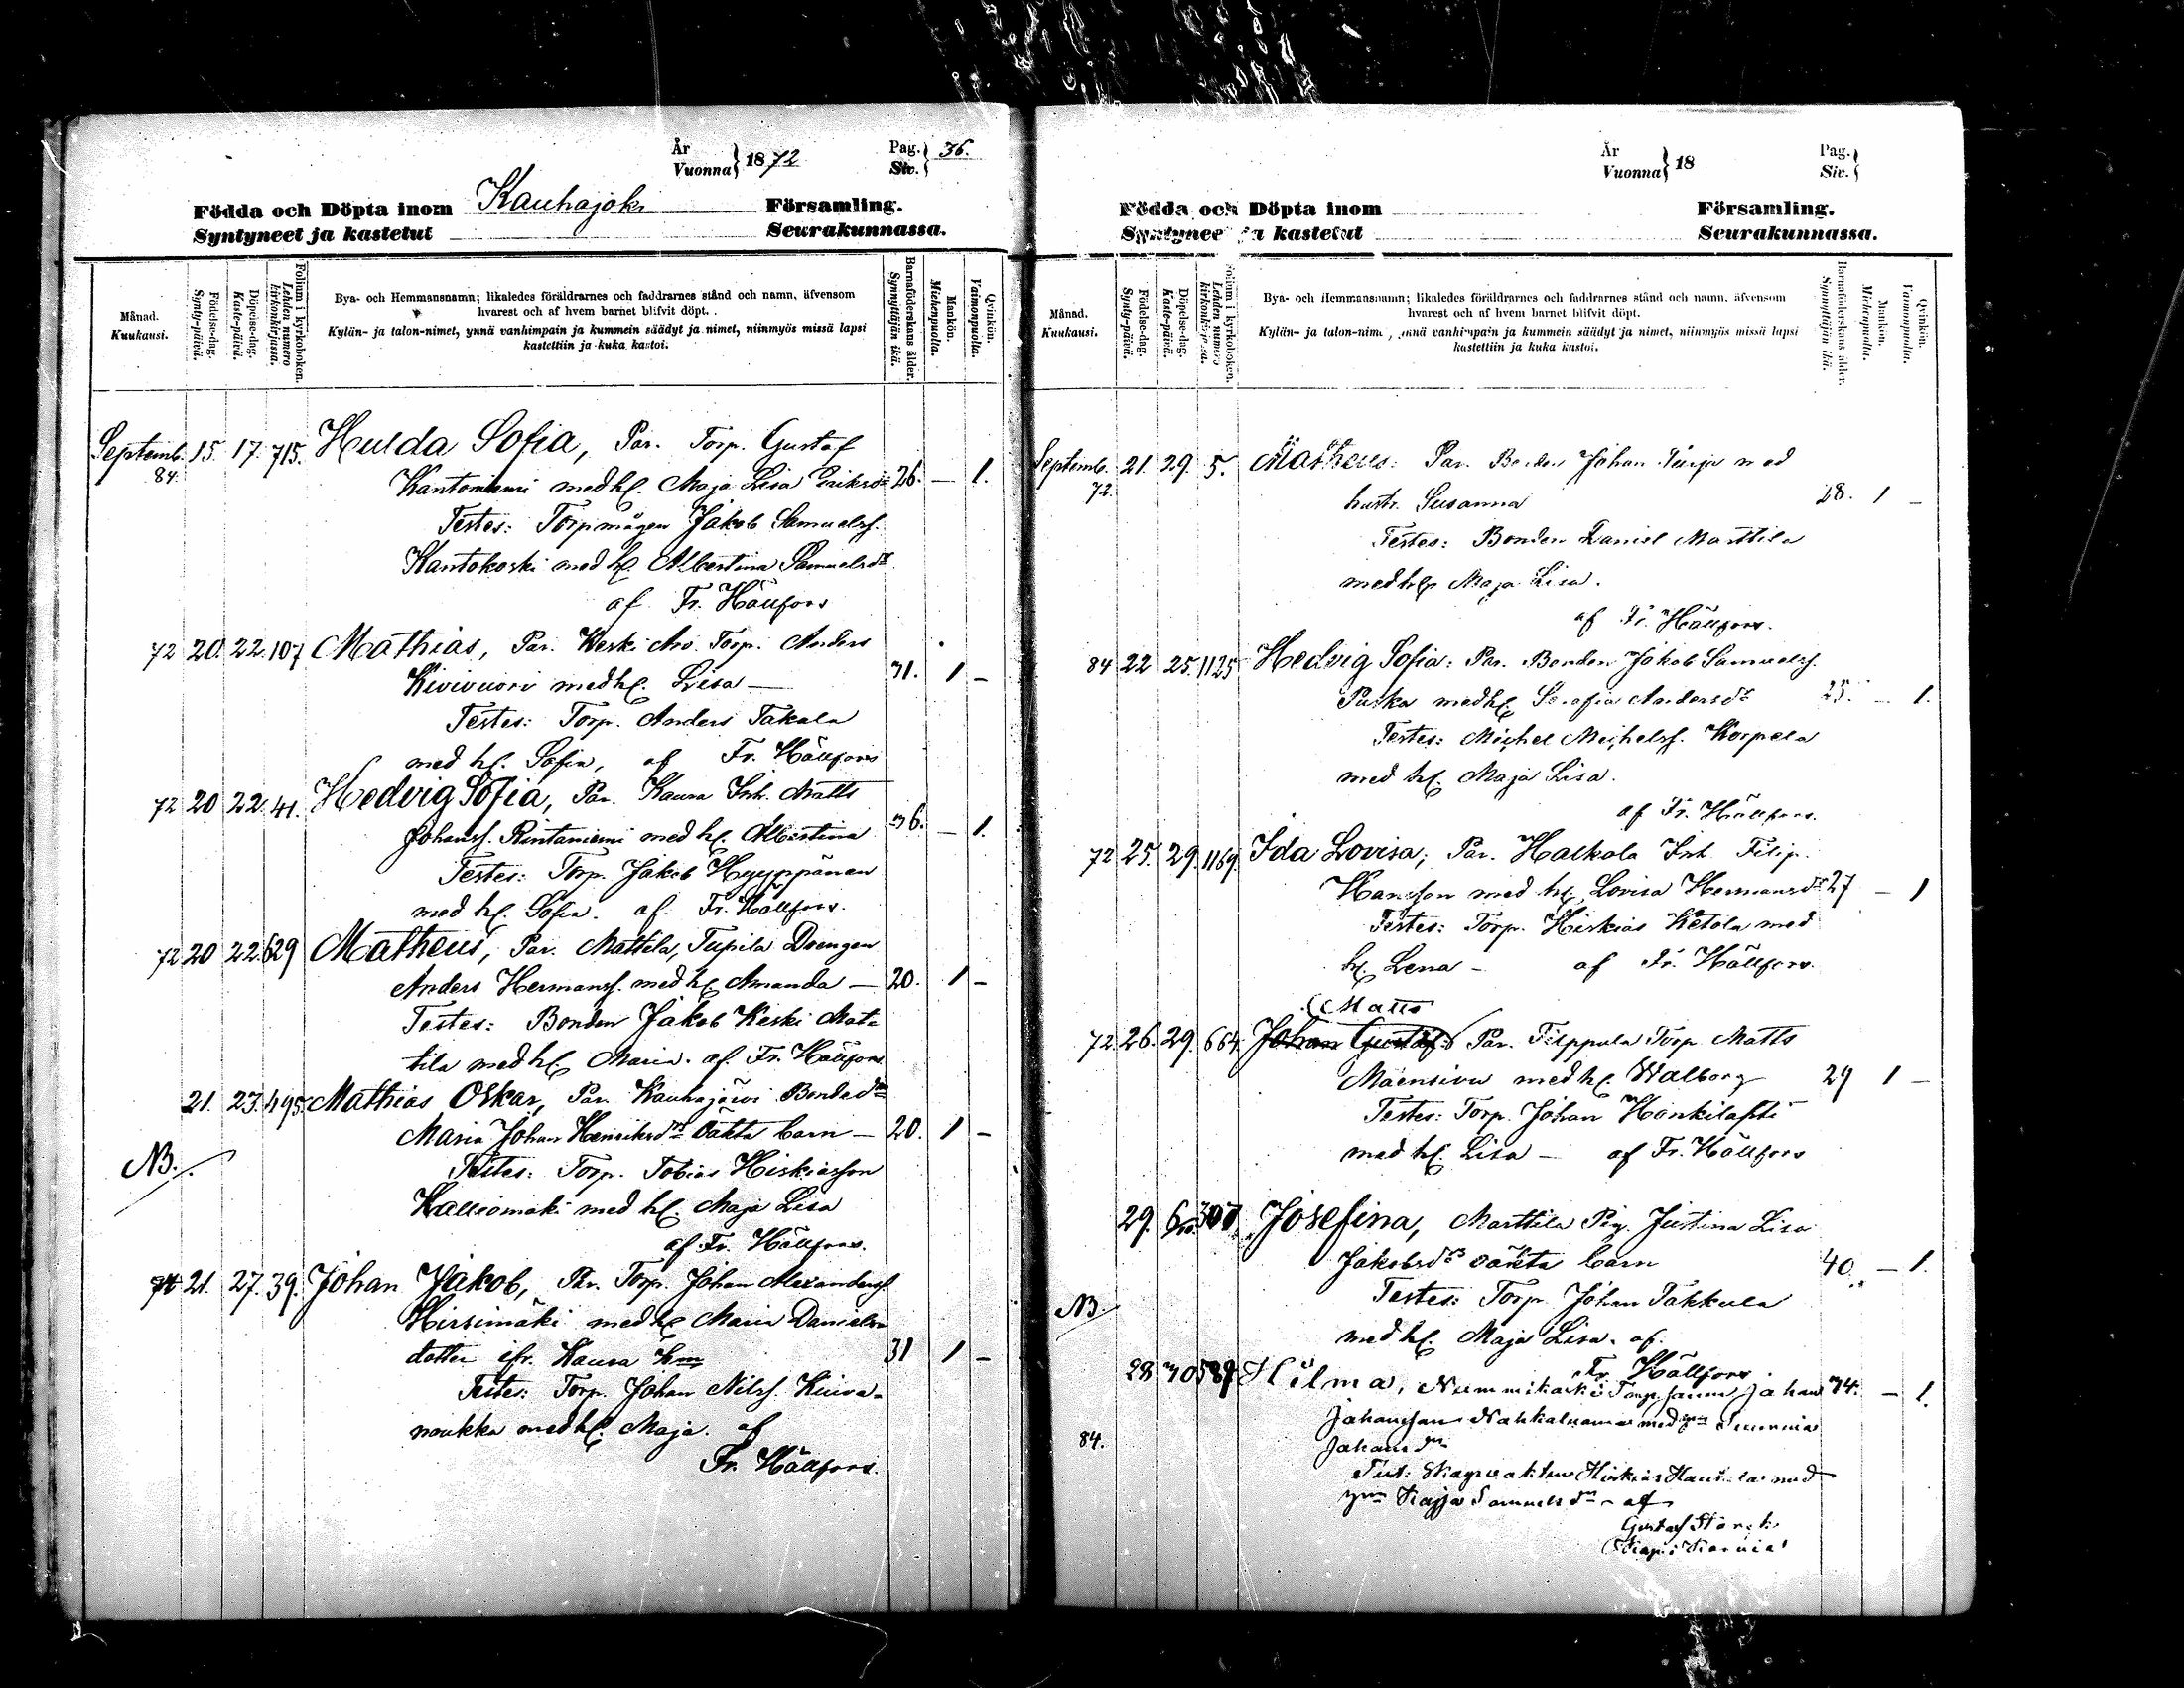 År
Vuonna } 1872
Pag.
Siv. } 36.
Födda och Döpta inom Kauhajoki Församling.
Syntyneet ja kastetut Seurakunnassa.
Månad.
Kuukausi.
Födelse-dag.
Synty-päivä.
Döpelse-dag.
Kaste-päivä.
Folium i kyrkoboken.
Lehden numero kirkonkirjassa.
Bya- och Hemmansnamn; likaledes föräldrarnes och faddrarnes stånd och namn, äfvensom
hvarest och af hvem barnet blifvit döpt.
Kylän- ja talon-nimet, ynnä vanhimpain ja kummein säädyt ja nimet, niinmyös missä lapsi
kastettiin ja kuka kastoi.
Barnaföderskans ålder.
Synnyttäjän ikä.
Mankön.
Miehenpuolta.
Qvinkön.
Vaimonpuolta.
Septemb. 15. 17. 715. Hulda Sofia, Par. Torp. Gustaf
84. Kantoniemi med h. Maja Lisa 26. — 1.
Testes: Torpmågen Jakob Samuelsf.
Kantokoski med h. Albertina Samuelsdr
af Fr. Hällfors
72 20. 22. 107 Mathias, Par. Keski Aro Torp. Anders
Kivivuori med h. Lisa — 31. 1 —
Testes: Torp. Anders Takala
med h. Sofia, af Fr. Hällfors
72 20 22. 41. Hedvig Sofia, Par. Kaura Inh. Matts
Johansf. Rintaniemi med h. Albertina 36. — 1.
Testes: Torp. Jakob Hyyppänen
med h. Sofia. af. Fr. Hällfors.
72 20 22. 629 Matheus, Par. Mattila, Tupila Drengen
Anders Hermansf. med h. Amanda — 20. 1 —
Testes: Bonden Jakob Keski Mat-
tila med h. Maria. af Fr. Hällfors
21. 23. 495. Mathias Oskar, Par. Kauhajärvi Bondedr
Maria Johan Henriksdrs oäkta barn — 20. 1 —
NB. Testes: Torp. Tobias Hiskiasson
Kalliomäki med h. Maja Lisa
af Fr. Hällfors.
21. 27. 39. Johan Jakob, Par. Torp. Johan Alexandersf.
Hirsimäki med h. Maria Daniels-
dotter ifr. Kaura 31 1 —
Testes: Torp. Johan Nilsf. Kuiva-
noukka med h. Maja. af
Fr. Hällfors.
År
Vuonna } 18
Pag.
Siv. }
Födda och Döpta inom Församling.
Syntyneet ja kastetut Seurakunnassa.
Månad.
Kuukausi.
Födelse-dag.
Synty-päivä.
Döpelse-dag.
Kaste-päivä.
Folium i kyrkoboken.
Lehden numero kirkonkirjassa.
Bya- och Hemmansnamn; likaledes föräldrarnes och faddrarnes stånd och namn, äfvensom
hvarest och af hvem barnet blifvit döpt.
Kylän- ja talon-nimet, ynnä vanhimpain ja kummein säädyt ja nimet, niinmyös missä lapsi
kastettiin ja kuka kastoi.
Barnaföderskans ålder.
Synnyttäjän ikä.
Mankön.
Miehenpuolta.
Qvinkön.
Vaimonpuolta.
Septemb. 21. 29. 5. Matheus: Par. Bonden Johan med
72. hustr. Susanna 28. 1 —
Testes: Bonden Daniel Marttila
med h. Maja Lisa.
af Fr. Hällfors.
84 22 25. 1125 Hedvig Sofia: Par. Bonden Jakob Samuelsf.
Puska med h. Serafia Andersdr 25. — 1.
Testes: Michel Michelsf. Korpela
med h. Maja Lisa.
af Fr. Hällfors.
72 25. 29. 1169. Ida Lovisa; Par. Halkola Inh. Filip.
Hansson med h. Lovisa Hermansdr 27 — 1
Testes: Torp. Hiskias Ketola med
h. Lena — af Fr. Hällfors.
Matts
72. 26. 29. 664. Johan Gustaf: Par. Filppula Torp. Matts
Maensivu med h. Walborg 29 1 —
Testes: Torp. Johan Honkilahti
med h. Lisa — af Fr. Hällfors
29. 6/10. 307. Josefina, Marttila Pig. Justina Lisa
Jakobsdrs oäkta barn 40. — 1.
Testes: Torp. Johan Takkula
NB. med h. Maja Lisa. af.
Fr. Hällfors
28 30 587 Hilma, Nummikoski Torp. Johan 34. — 1.
Johansson med
84. Johansdr
Test: Hiskias med
Kajsa Samuelsdr af
Gustaf